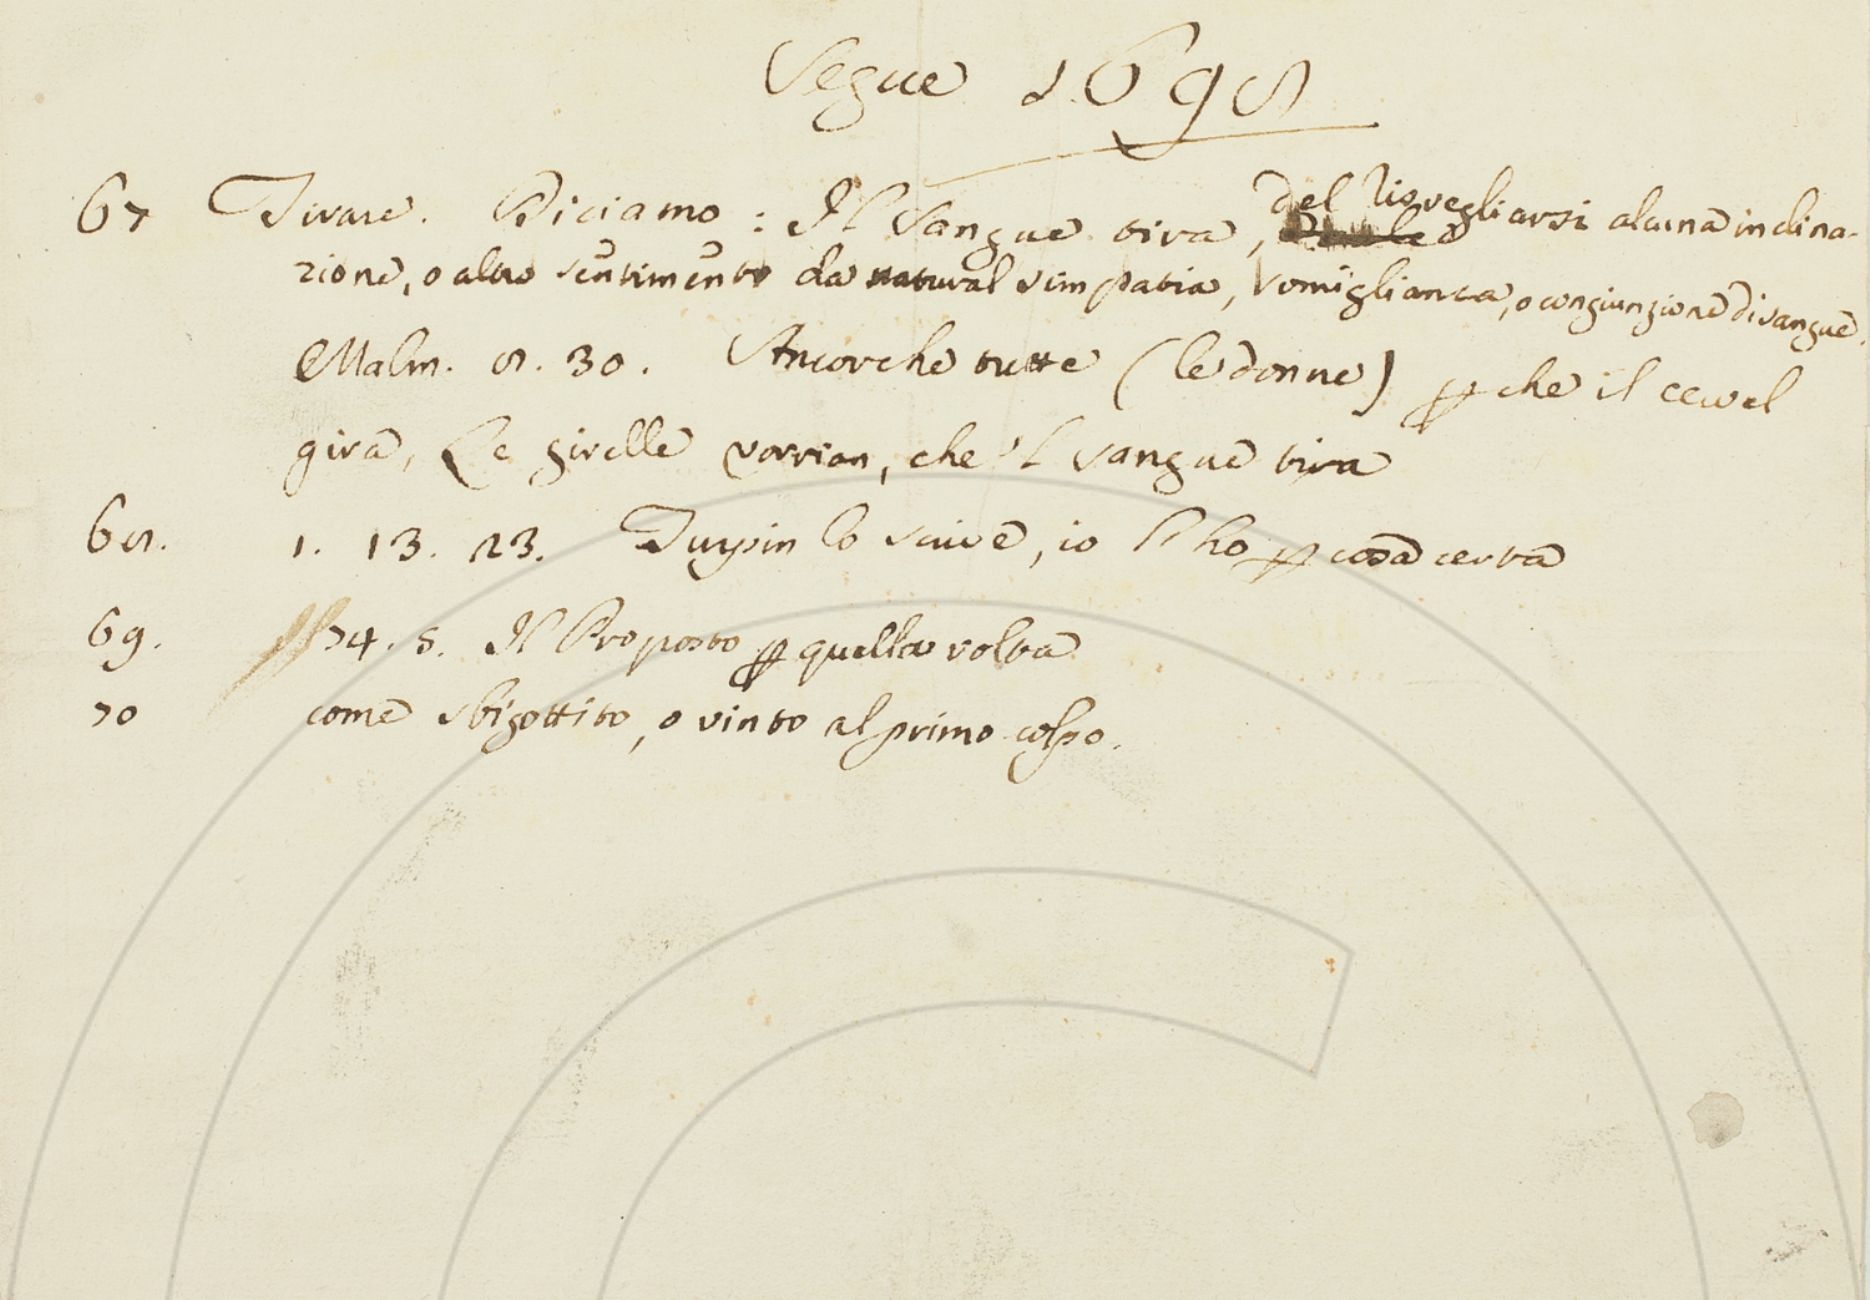 Segue 1698
67 Tirare. Diciamo: Il Sangue tira, del risvegliarsi alcuna inclina-
zione, o altro sentimento da natural simpatia, somiglianza, o congiunzione di sangue.
Malm. 8. 30. Ancorche tutte (le donne) ꝑche il cervel
gira, Le girelle vorrian, che 'l sangue tira
68. 1. 13. 23. Turpin lo scrive, io l'ho ꝑ cosa certa
69. 74. 5. Il Proposto ꝑ quella volta
70 come sbigottito, o vinto al primo colpo.